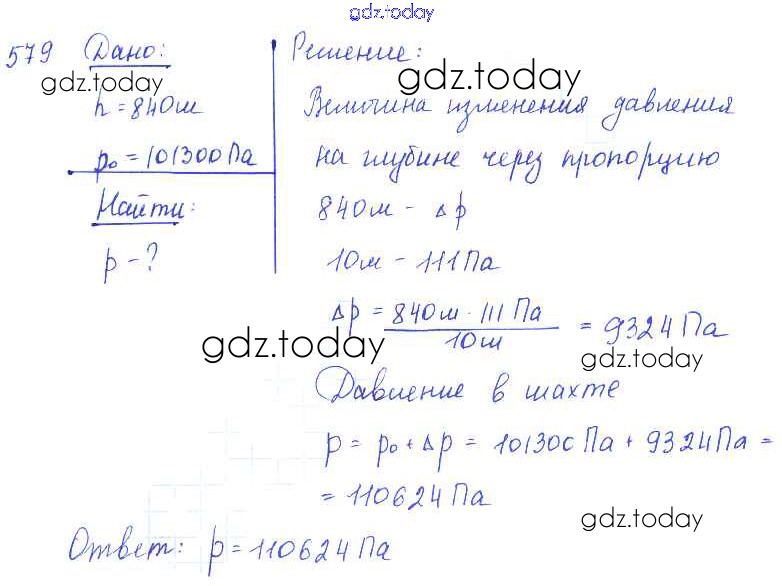 gdz.today
579 Дано:
gdz.today
h = 840м
p₀ = 101300 Па
Найти:
p - ?
Решение:
gdz.today
Величина изменения давления
на глубине через пропорцию
840м - Δp
10м - 111 Па
Δp = 840м · 111 Па / 10м = 9324 Па
gdz.today
gdz.today
Давление в шахте
p = p₀ + Δp = 101300 Па + 9324 Па =
= 110624 Па
gdz.today
Ответ: p = 110624 Па